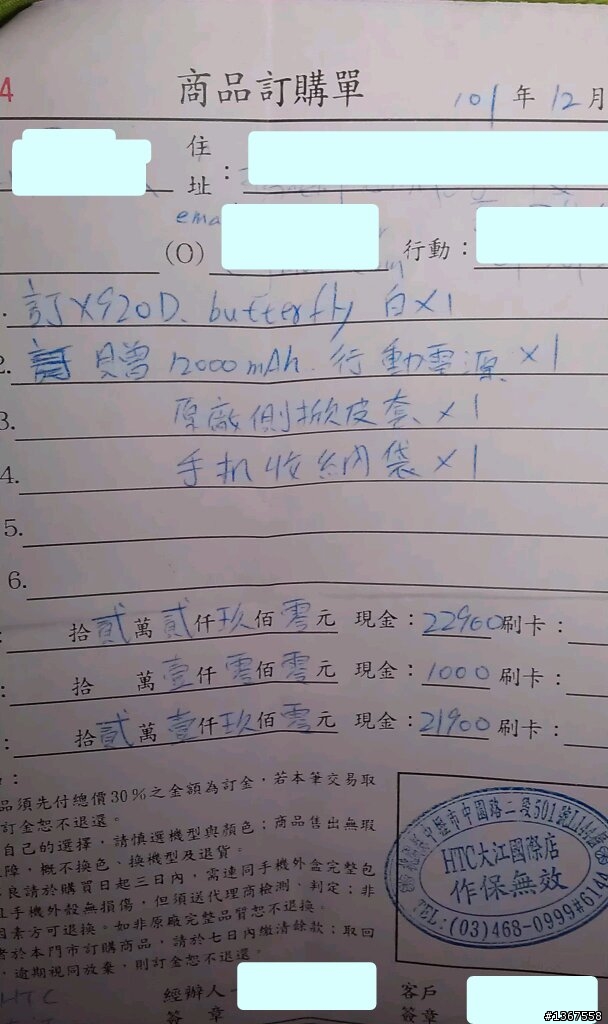 4
商品訂購單
101年12月
住址：
ema
(O) 行動：
1. 訂X920D、butterfly 白×1
2. 贈 12000mAh. 行動電源 ×1
3. 原廠側掀皮套 ×1
4. 手机收納袋 ×1
5.
6.
拾貳萬貳仟玖佰零元 現金：22900刷卡：
拾 萬壹仟零佰零元 現金：1000刷卡：
拾貳萬壹仟玖佰零元 現金：21900刷卡：
：
品須先付總價30%之金額為訂金，若本筆交易取
訂金恕不退還。
自己的選擇，請慎選機型與顏色；商品售出無瑕
障，概不換色、換機型及退貨。
良請於購買日起三日內，需連同手機外盒完整包
且手機外殼無損傷，但須送代理商檢測、判定；非
因素方可退換。如非原廠完整品質恕不退換。
者於本門市訂購商品，請於七日內繳清餘款；取回
，逾期視同放棄，則訂金恕不退還。
中壢市中園路二段501號
HTC大江國際店
作保無效
TEL:(03)468-0999#6144
HTC
經辦人
簽 章
客戶
簽章
#1367558